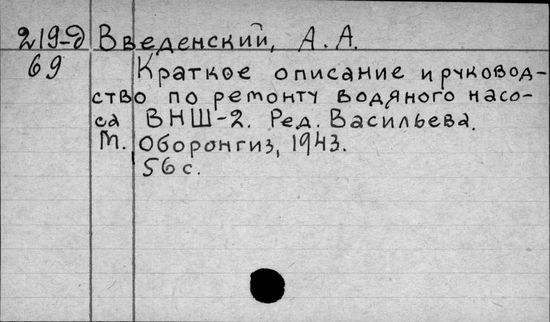 219-д Введенский, А. А.
69 Краткое описание и руковод-
ство по ремонту водяного насо-
са ВНШ-2. Ред. Васильева.
М. Оборонгиз, 1943.
56 с.